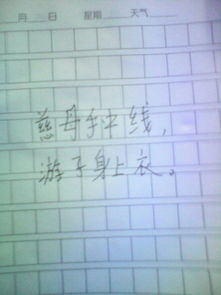 月 日 星期 天气
慈母手中线，
游子身上衣。